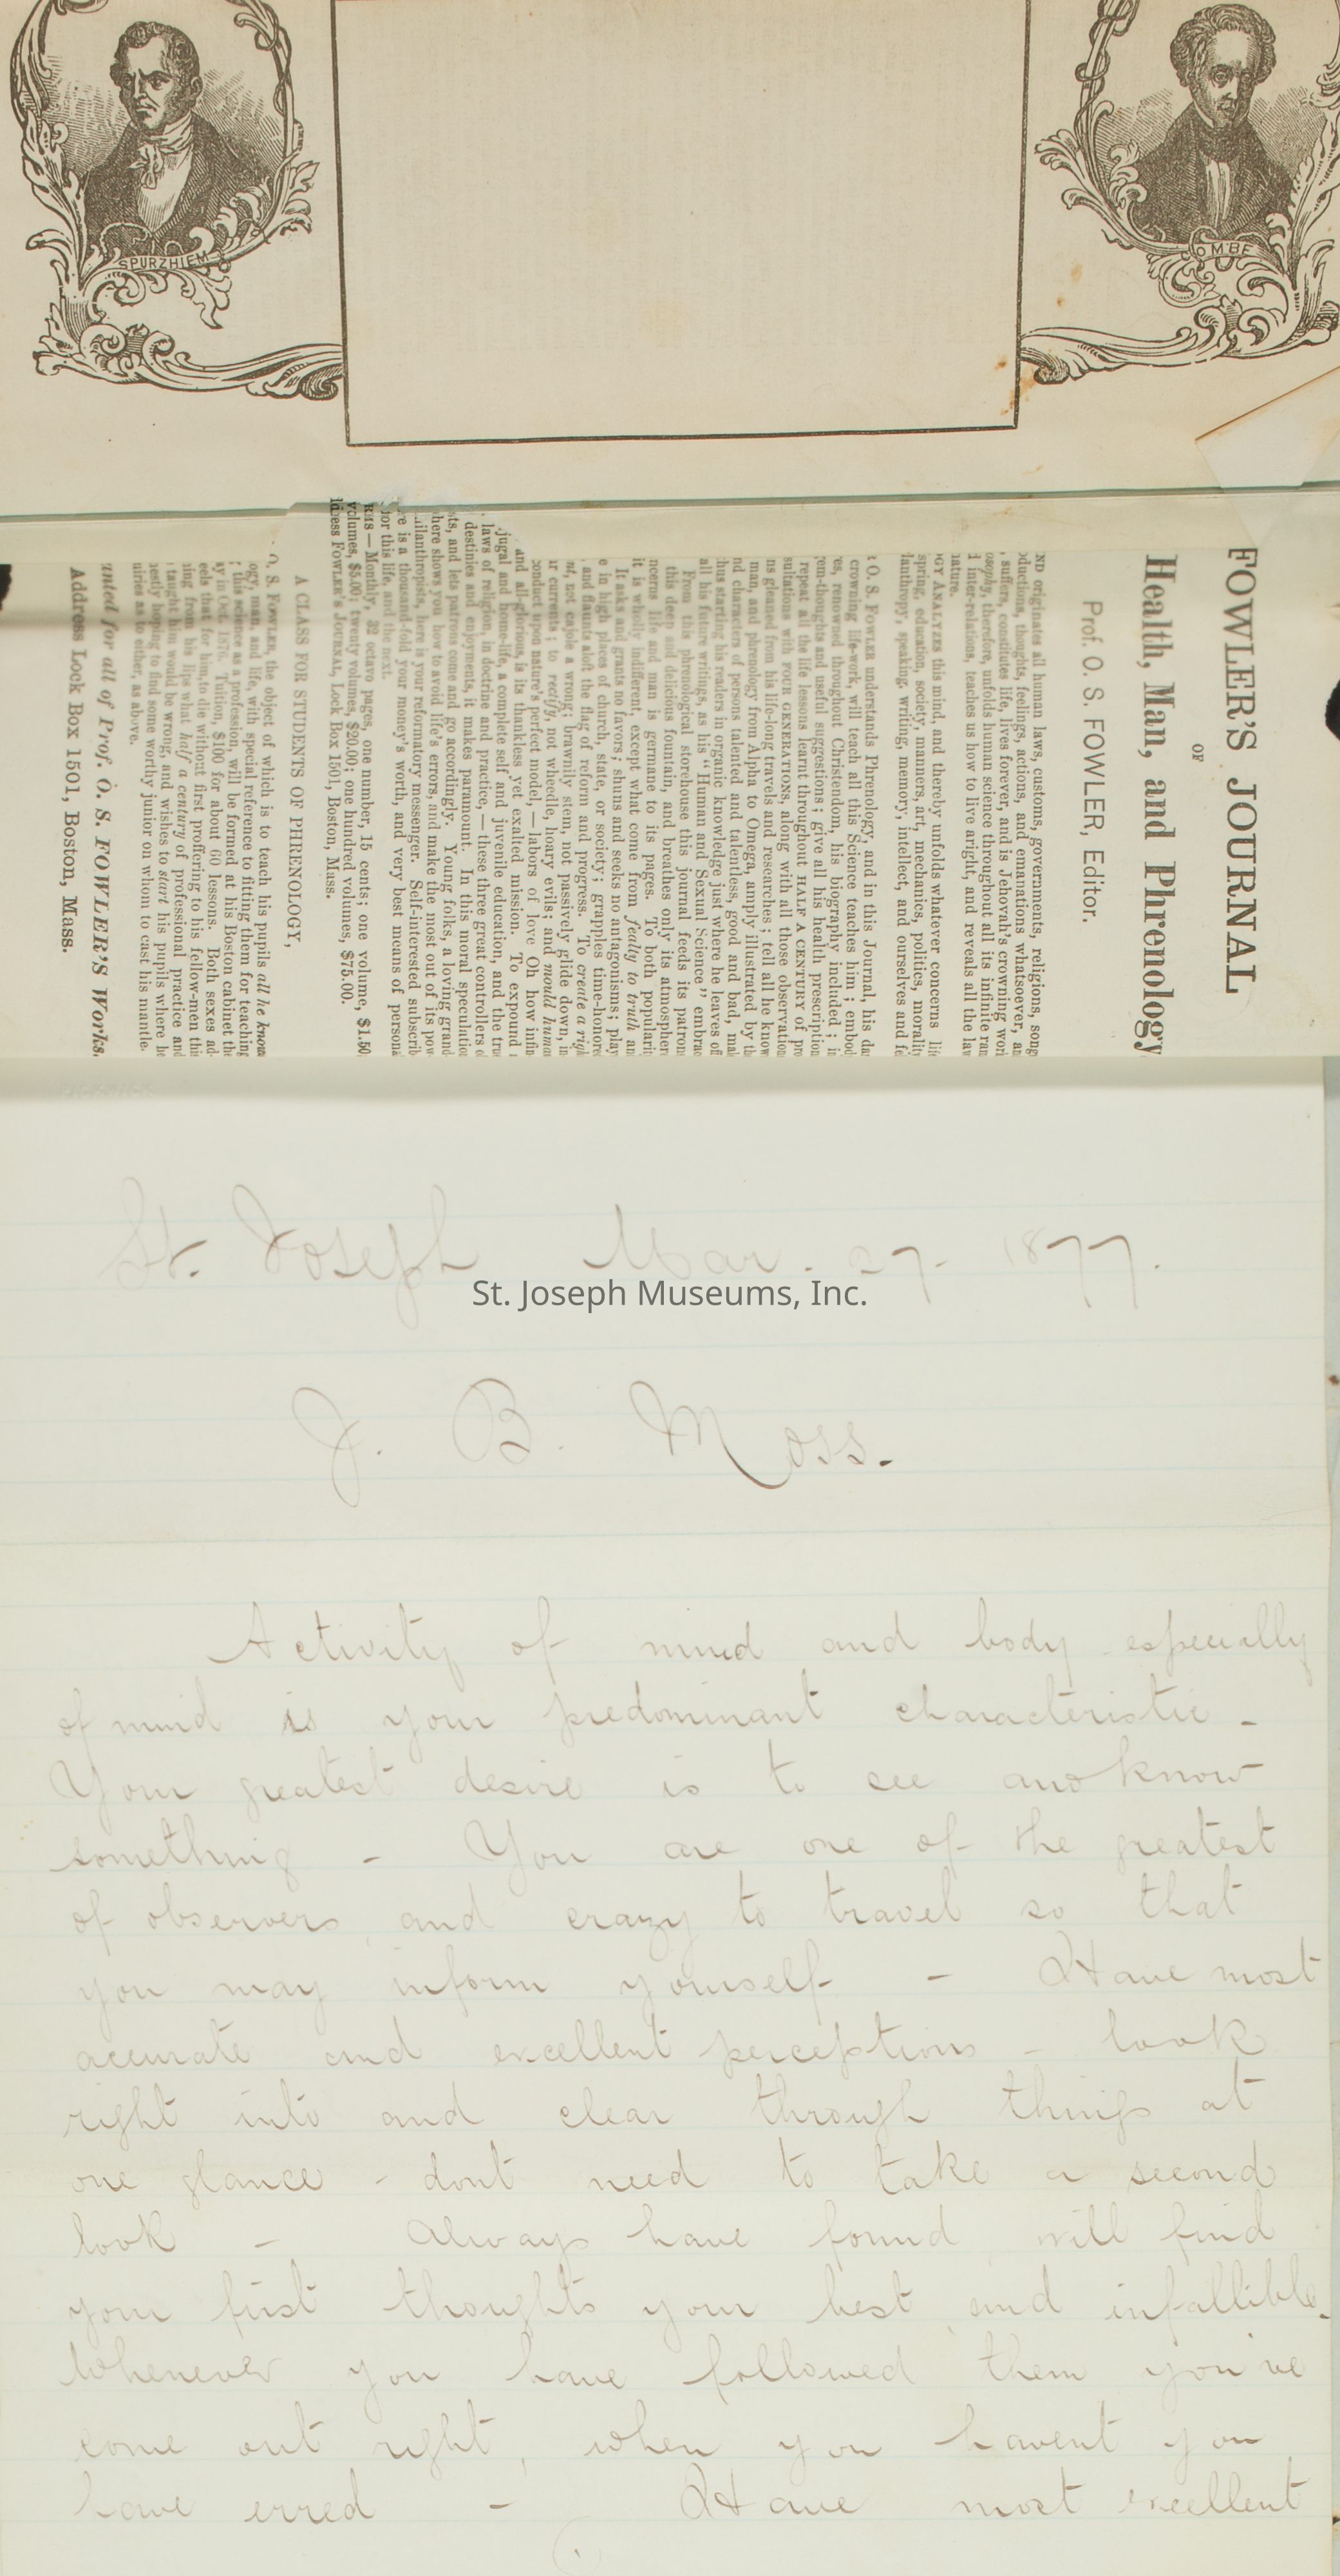 SPURZHIEM
OMBE
FOWLER'S JOURNAL
OF
Health, Man, and Phrenology
Prof. O. S. FOWLER, Editor.
ND originates all human laws, customs, governments, religions, song
oductions, thoughts, feelings, actions, and emanations whatsoever, an
, suffers, constitutes life, lives forever, and is Jehovah's crowning wor
osophy, therefore, unfolds human science throughout all its infinite ran
d inter-relations, teaches us how to live aright, and reveals all the law
nature.
OGY ANALYZES this mind, and thereby unfolds whatever concerns life
spring, education, society, manners, art, mechanics, politics, morality
lanthropy, speaking, writing, memory, intellect, and ourselves and fe
O. S. FOWLER understands Phrenology, and in this Journal, his da
crowning life-work, will teach all this Science teaches him; embod
es, renowned throughout Christendom, his biography included; i
em-thoughts and useful suggestions; give all his health prescription
repeat all the life lessons learnt throughout HALF A CENTURY of pr
sultations with FOUR GENERATIONS, along with all those observation
ns gleaned from his life-long travels and researches; tell all he know
man, and phrenology from Alpha to Omega, amply illustrated by th
nd characters of persons talented and talentless, good and bad, mal
hus starting his readers in organic knowledge just where he leaves of
all his future writings, as his "Human and Sexual Science" embrac
From this phrenological storehouse this journal feeds its patrons
this deep and delicious fountain, and breathes only its atmosphere
ncerns life and man is germane to its pages. To both populari
it is wholly indifferent, except what come from fealty to truth an
It asks and grants no favors; shuns and seeks no antagonisms; play
e in high places of church, state, or society; grapples time-honore
, and flaunts aloft the flag of reform and progress. To create a righ
nt, not cajole a wrong; brawnily stem, not passively glide down, i
ur currents; to rectify, not wheedle, hoary evils; and mould human
conduct upon nature's perfect model, — labors of love Oh how infin
and all-glorious, is its thankless yet exalted mission. To expound
jugal and home-life, a complete self and juvenile education, and the true
laws of religion, in doctrine and practice, — these three great controllers o
destinies and enjoyments, it makes paramount. In this moral speculatio
sts, and lets patrons come and go accordingly. Young folks, a loving grand
here shows you how to avoid life's errors, and make the most out of its pow
ilanthropists, here is your reformatory messenger. Self-interested subscrib
re is a thousand-fold your money's worth, and very best means of persona
for this life, and the next.
RMS — Monthly, 32 octavo pages, one number, 15 cents; one volume, $1.50
volumes, $5.00; twenty volumes, $20.00; one hundred volumes, $75.00.
ddress FOWLER'S JOURNAL, Lock Box 1501, Boston, Mass.
A CLASS FOR STUDENTS OF PHRENOLOGY,
O. S. FOWLER, the object of which is to teach his pupils all he know
ogy, man, and life, with special reference to fitting them for teaching
; this science as a profession, will be formed at his Boston cabinet th
ay in Oct. 1876. Tuition, $100 for about 60 lessons. Both sexes ad-
eels that for him to die without first proffering to his fellow-men this
ing from his lips what half a century of professional practice and
taught him would be wrong, and wishes to start his pupils where he
nestly hoping to find some worthy junior on whom to cast his mantle.
uiries as to either, as above.
anted for all of Prof. O. S. FOWLER'S Works.
Address Lock Box 1501, Boston, Mass.
St. Joseph Mar. 27. 1877.
St. Joseph Museums, Inc.
J. B. Moss.
Activity of mind and body especially
of mind is your predominant characteristic -
Your greatest desire is to see and know
something - You are one of the greatest
of observers and crazy to travel so that
you may inform yourself - Have most
accurate and excellent perceptions - look
right into and clear through things at
one glance - dont need to take a second
look - Always have found, will find
your first thoughts your best and infallible.
Whenever you have followed them you've
come out right, when you havent you
have erred - Have most excellent